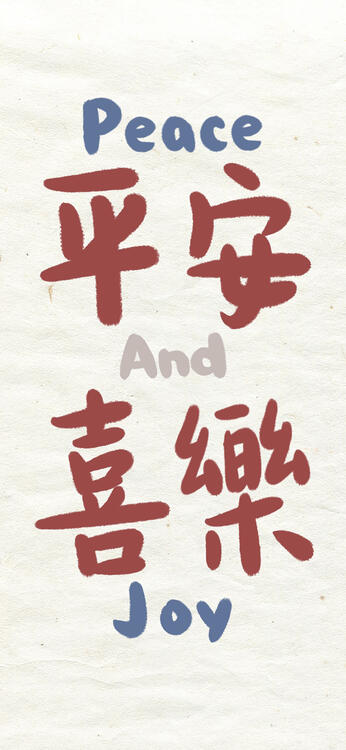 Peace
平安
And
喜樂
Joy